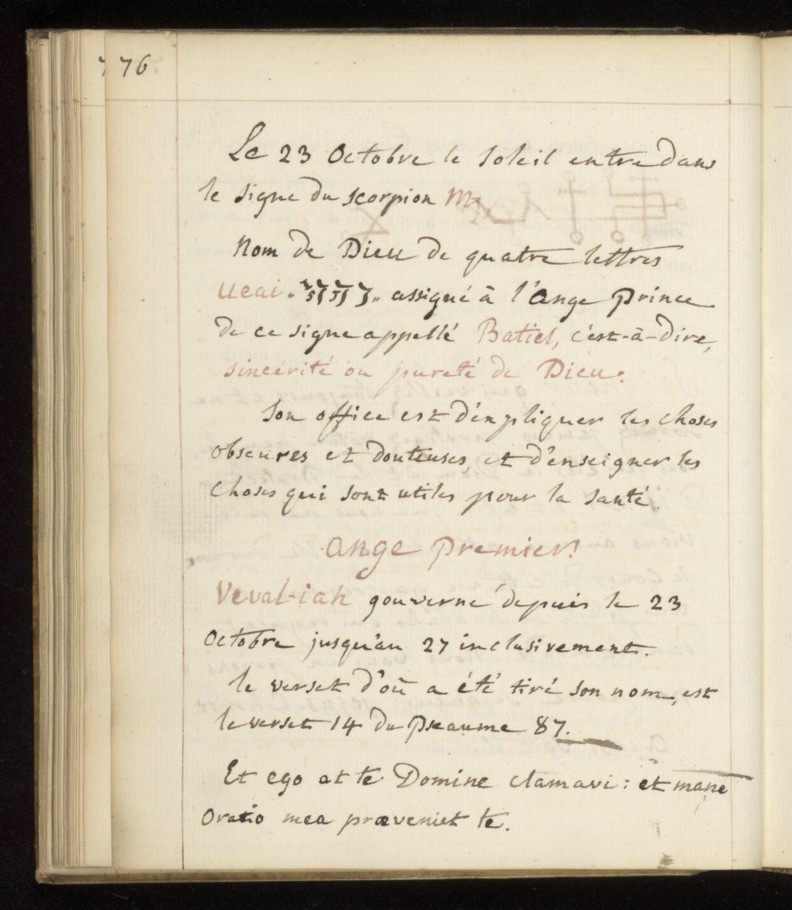 76
Le 23 Octobre le Soleil entre dans
le signe du scorpion ♏
Nom de Dieu de quatre lettres
Ueai assigné à l'Ange prince
de ce signe appellé Batiel, c'est-à-dire,
sincérité ou pureté de Dieu.
Son office est d'expliquer les choses
obscures et douteuses, et d'enseigner les
choses qui sont utiles pour la santé.
Ange premier.
Veval-iah gouverne depuis le 23
Octobre jusqu'au 27 inclusivement.
le verset d'où a été tiré son nom, est
le verset 14 du pseaume 87.
Et ego at te Domine clamavi: et mane
Oratio mea præveniet te.